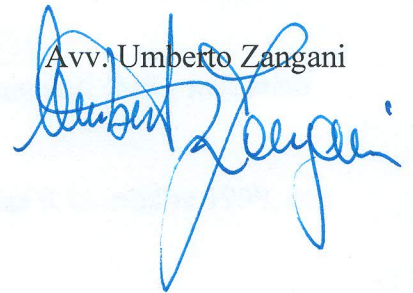 Avv. Umberto Zangani
Umberto Zangani